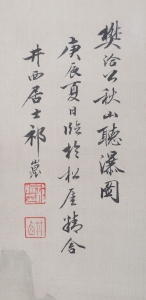 樊洽公秋山聽瀑圖
庚辰夏日臨於松厓精舍
井西居士祁崑